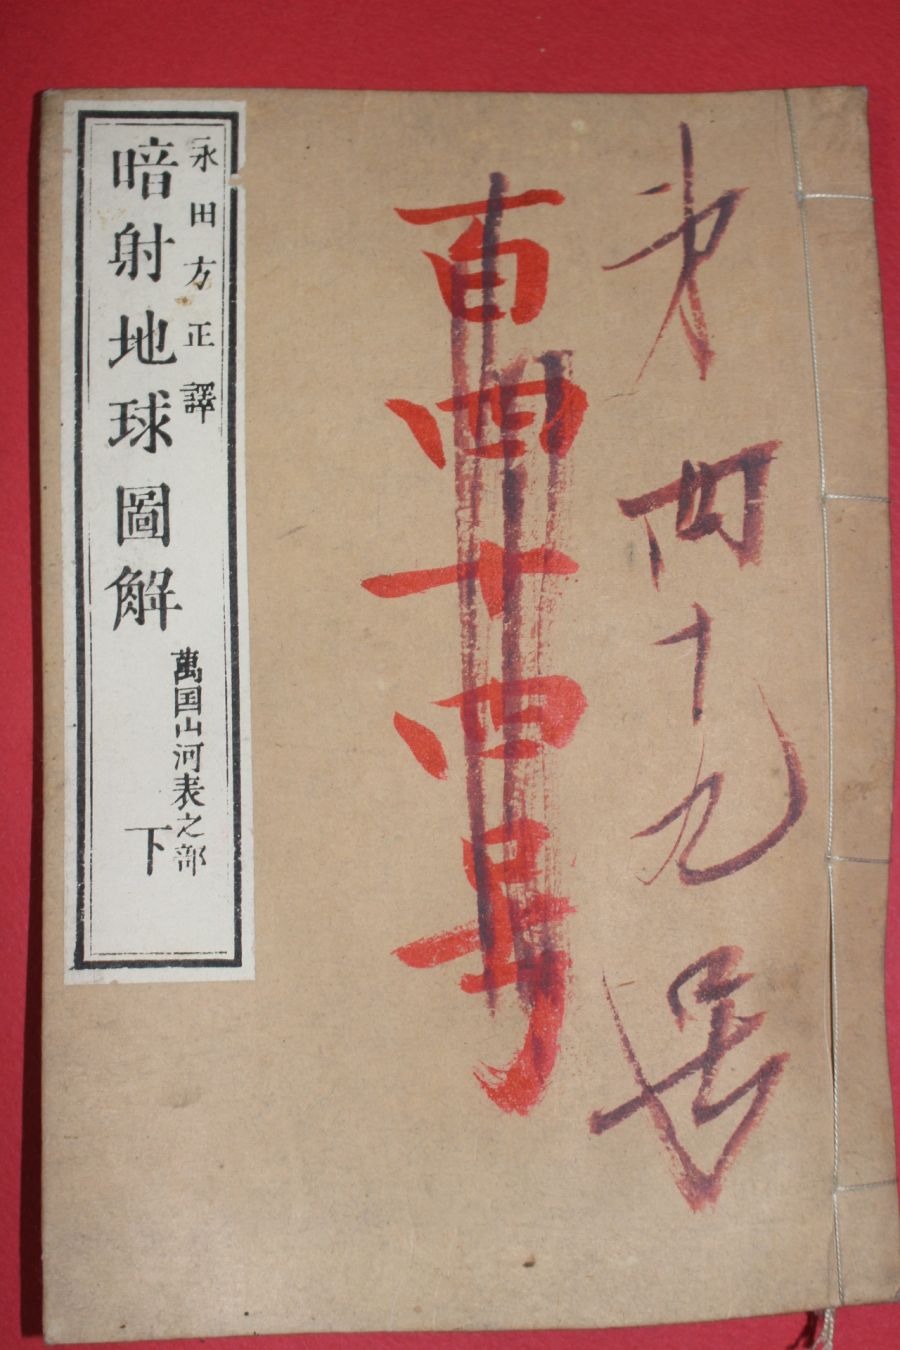 第四十九号
百四十四号
永田方正譯
暗射地球圖解
萬国山河表之部
下